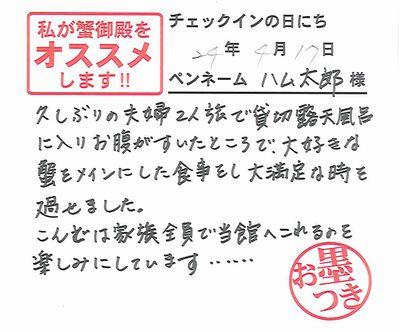 私が蟹御殿を
オススメ
します!!
チェックインの日にち
24年 4月 17日
ペンネーム ハム太郎 様
久しぶりの夫婦2人旅で貸切露天風呂
に入りお腹がすいたところで、大好きな
蟹をメインにした食事をし大満足な時を
過せました。
こんどは家族全員で当館へこれるのを
楽しみにしています……
お墨つき